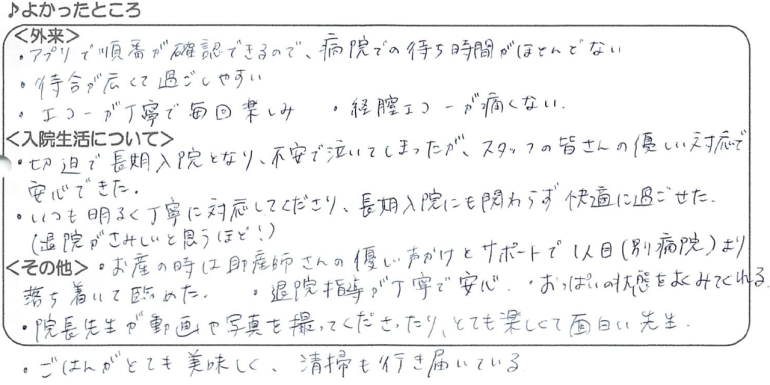 ♪よかったところ
<外来>
・アプリで順番が確認できるので、病院での待ち時間がほとんどない
・待合が広くて過ごしやすい
・エコーが丁寧で毎回楽しみ ・経膣エコーが痛くない.
<入院生活について>
・切迫で長期入院となり、不安で泣いてしまったが、スタッフの皆さんの優しい対応で
安心できた.
・いつも明るく丁寧に対応してくださり、長期入院にも関わらず快適に過ごせた.
(退院がさみしいと思うほど!)
<その他>・お産の時は助産師さんの優しい声かけとサポートで1人目(別病院)より
落ち着いて臨めた. ・退院指導が丁寧で安心. ・おっぱいの状態をよくみてくれる.
・院長先生が動画や写真を撮ってくださったり、とても楽しくて面白い先生.
・ごはんがとても美味しく、清掃も行き届いている